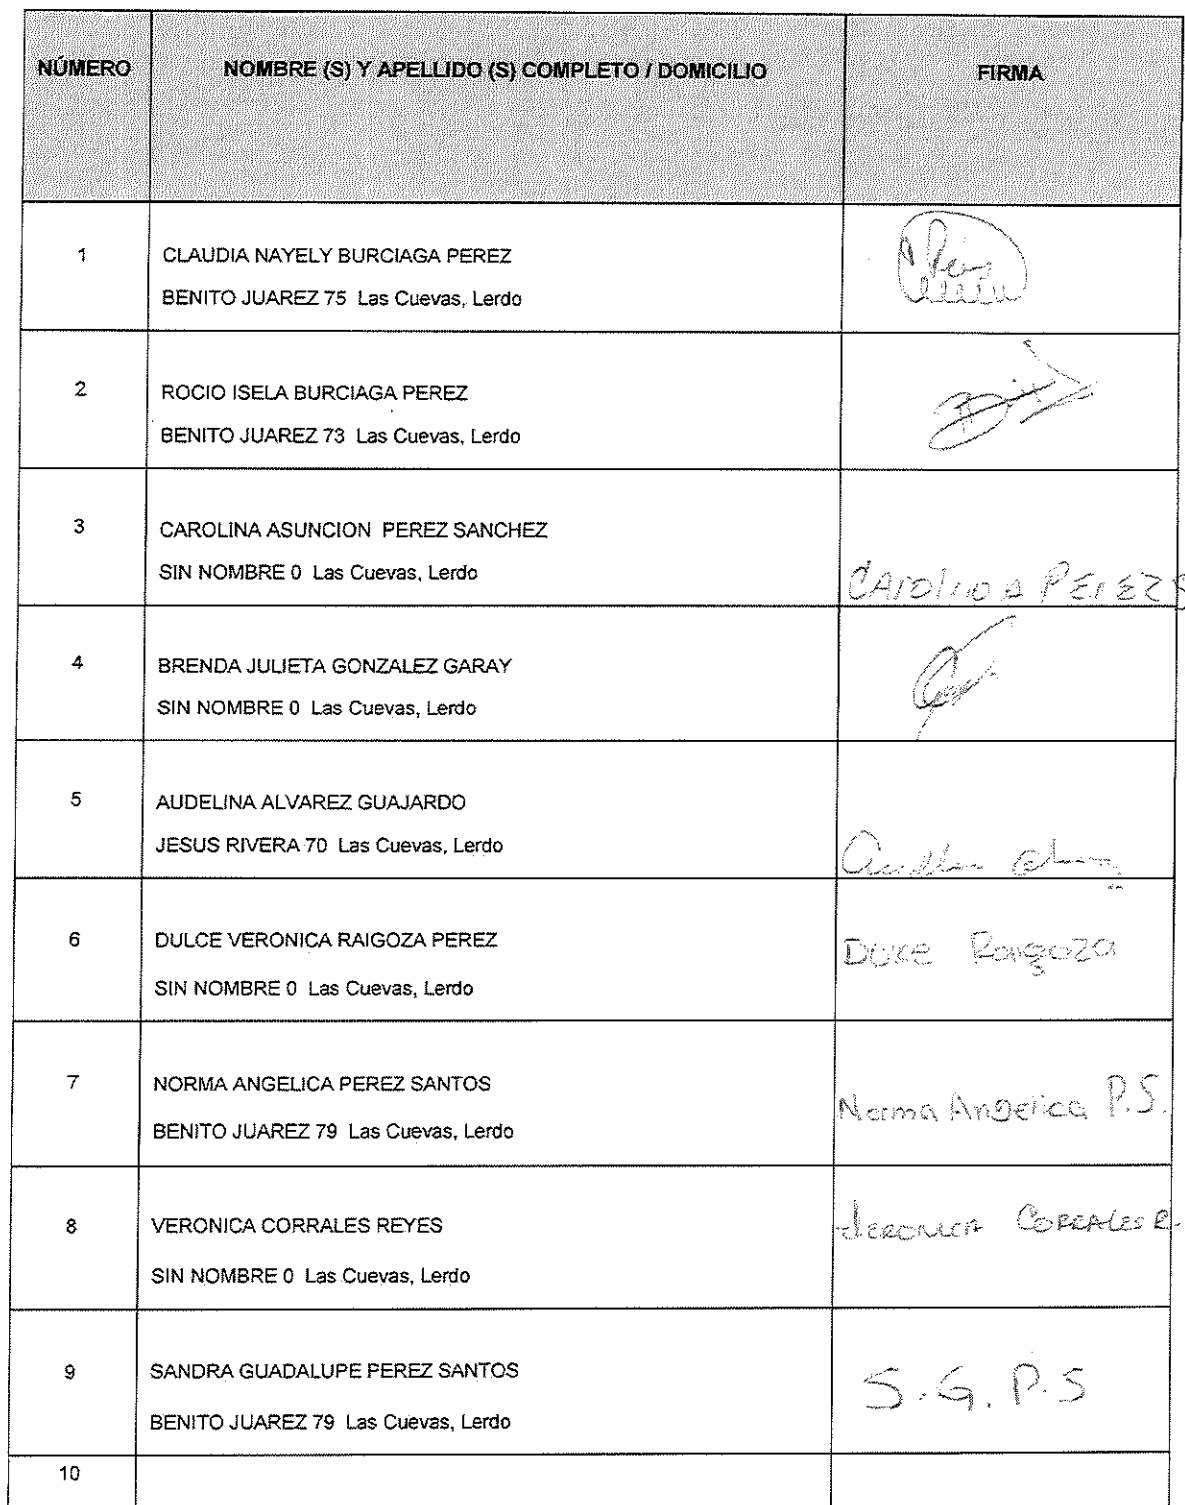 NÚMERO NOMBRE (S) Y APELLIDO (S) COMPLETO / DOMICILIO FIRMA
1 CLAUDIA NAYELY BURCIAGA PEREZ
BENITO JUAREZ 75 Las Cuevas, Lerdo
2 ROCIO ISELA BURCIAGA PEREZ
BENITO JUAREZ 73 Las Cuevas, Lerdo
3 CAROLINA ASUNCION PEREZ SANCHEZ
SIN NOMBRE 0 Las Cuevas, Lerdo
CArolina PErEZ S
4 BRENDA JULIETA GONZALEZ GARAY
SIN NOMBRE 0 Las Cuevas, Lerdo
5 AUDELINA ALVAREZ GUAJARDO
JESUS RIVERA 70 Las Cuevas, Lerdo
6 DULCE VERONICA RAIGOZA PEREZ
Dulce Raigoza
SIN NOMBRE 0 Las Cuevas, Lerdo
7 NORMA ANGELICA PEREZ SANTOS
Norma Angelica P.S.
BENITO JUAREZ 79 Las Cuevas, Lerdo
8 VERONICA CORRALES REYES
VERONICA CORRALES R.
SIN NOMBRE 0 Las Cuevas, Lerdo
9 SANDRA GUADALUPE PEREZ SANTOS
S.G.P.S
BENITO JUAREZ 79 Las Cuevas, Lerdo
10